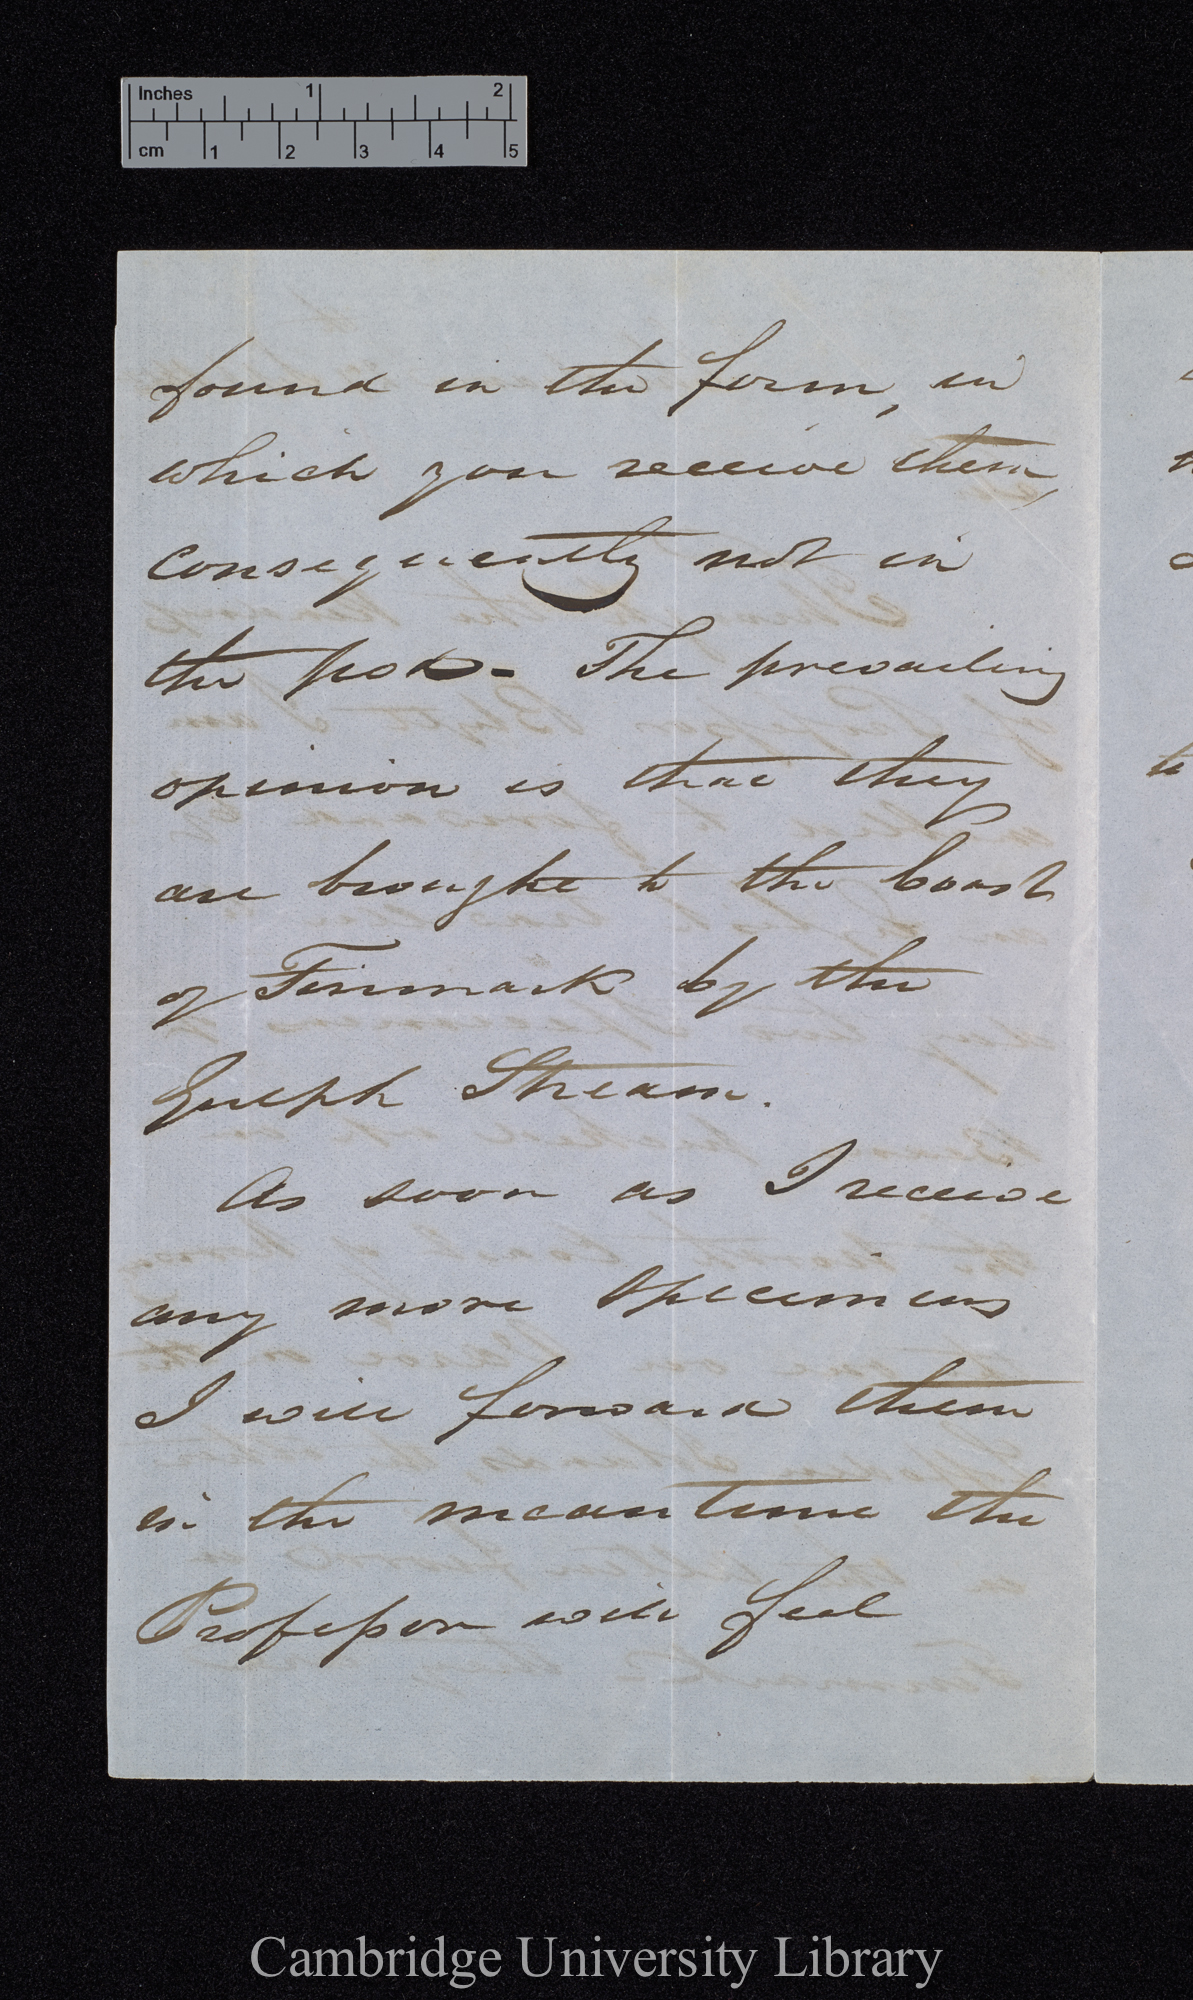 Inches 1 2
cm 1 2 3 4 5
found in the form, in
which you receive them,
consequently not in
the pod. The prevailing
opinion is that they
are brought to the Coast
of Finmark by the
Gulph Stream.
As soon as I receive
any more specimens
I will forward them
in the meantime the
Professor will feel
Cambridge University Library